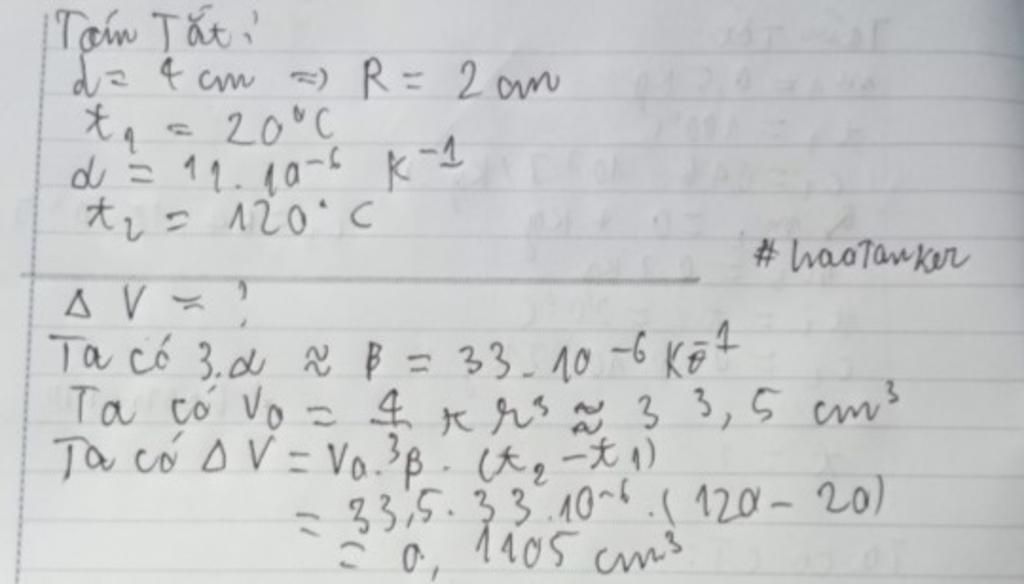 Tóm Tắt:
d = 4 cm => R = 2 cm
t₁ = 20°C
α = 11.10⁻⁶ K⁻¹
t₂ = 120°C
#haoTanker
Δ V = ?
Ta có 3.α ≈ β = 33.10⁻⁶ K⁻¹
Ta có V₀ = 4/3 π r³ ≈ 33,5 cm³
Ta có Δ V = V₀.β.(t₂ - t₁)
= 33,5.33.10⁻⁶.(120 - 20)
= 0,1105 cm³